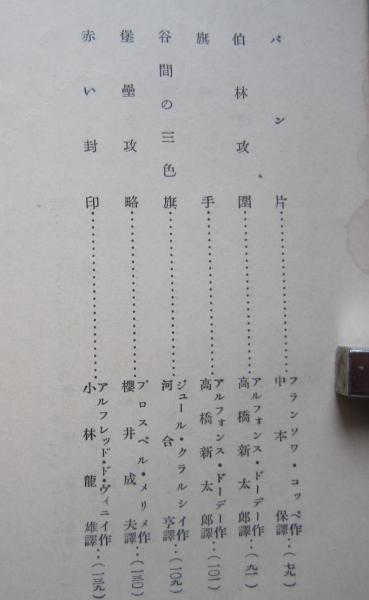 パン片‥‥‥‥‥‥フランソワ・コッペ作
中本保譯‥(七九)
伯林攻圍‥‥‥‥‥‥アルフォンス・ドーデー作
高橋新太郎譯‥(九一)
旗手‥‥‥‥‥‥アルフォンス・ドーデー作
高橋新太郎譯‥(一〇一)
谷間の三色旗‥‥‥‥‥‥ジュール・クラルシイ作
河合亨譯‥(一〇九)
堡壘攻略‥‥‥‥‥‥プロスペル・メリメ作
櫻井成夫譯‥(一三〇)
赤い封印‥‥‥‥‥‥アルフレッド・ド・ヴィニイ作
小林龍雄譯‥(一三九)